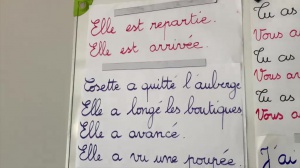 Elle est repartie.
Elle est arrivée.
Cosette a quitté l'auberge
Elle a longé les boutiques
Elle a avancé.
Elle a vu une poupée.
Tu as
Vous a
Tu as
Vous a
Tu as
Vous
J'ai